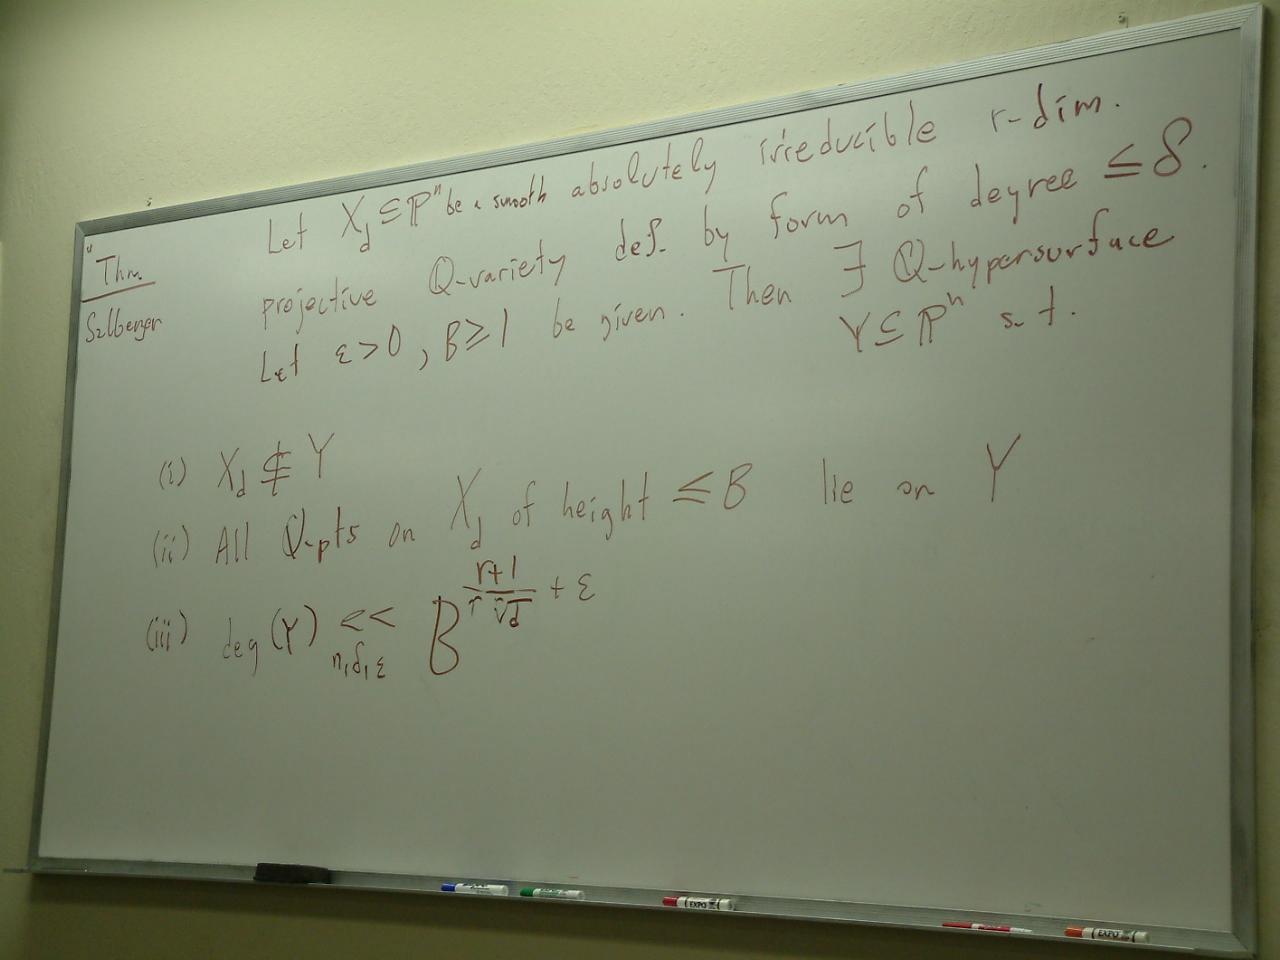 "Thm
Salberger
Let X_d ⊆ ℙ^n be a smooth absolutely irreducible r-dim.
projective Q-variety def. by form of degree ≤ δ.
Let ε>0, B≥1 be given. Then ∃ Q-hypersurface
Y ⊆ ℙ^n s.t.
(i) X_d ⊈ Y
(ii) All Q-pts on X_d of height ≤ B lie on Y
(iii) deg(Y) <<_{n,δ,ε} B^{\frac{r+1}{r \sqrt[r]{d}} + ε}
EXPO
EXPO